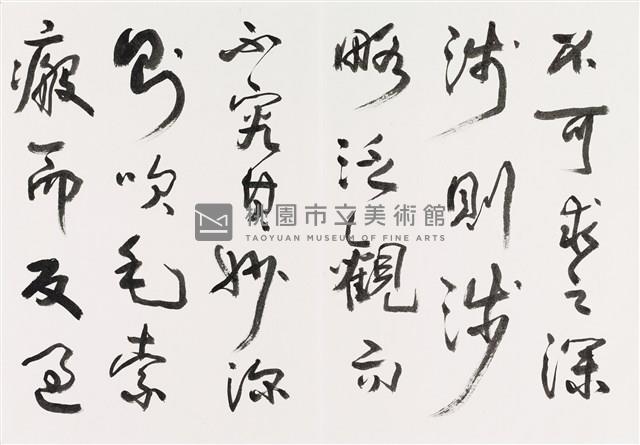 不可求之深
淺則涉
略泛觀而
不究其妙深
則吹毛索
瘢而反過
桃園市立美術館
TAOYUAN MUSEUM OF FINE ARTS